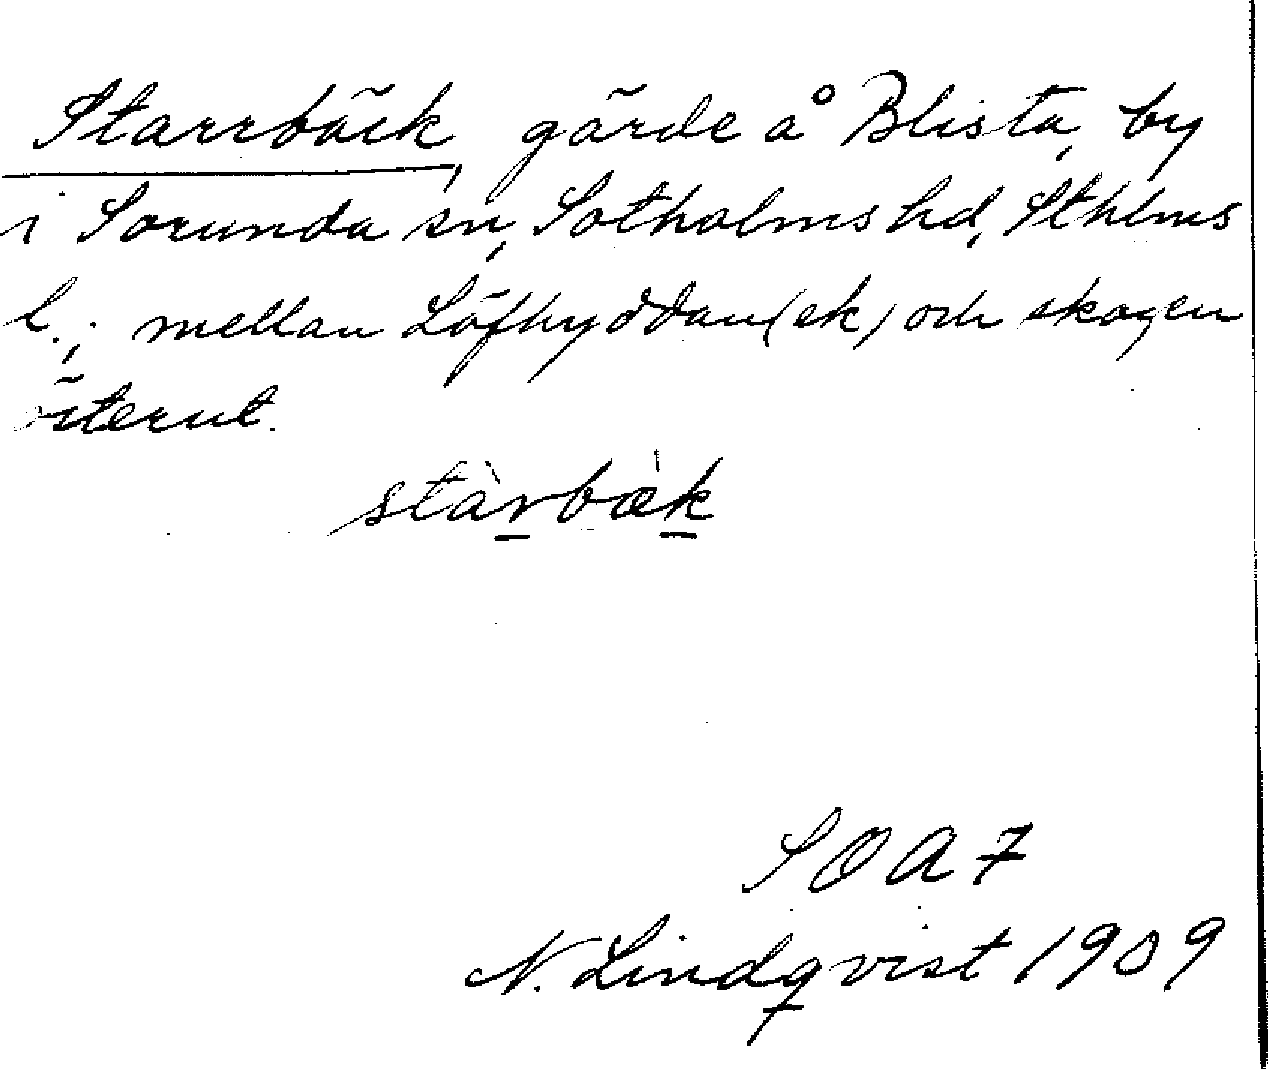 Starrbäck, gärde å Blista, by
i Sorunda sn, Sotholms hd, Sthlms
l.; mellan Löfhyddan (ek) och skogen
österut.
stàrbæ̀k
SOA7
N. Lindqvist 1909